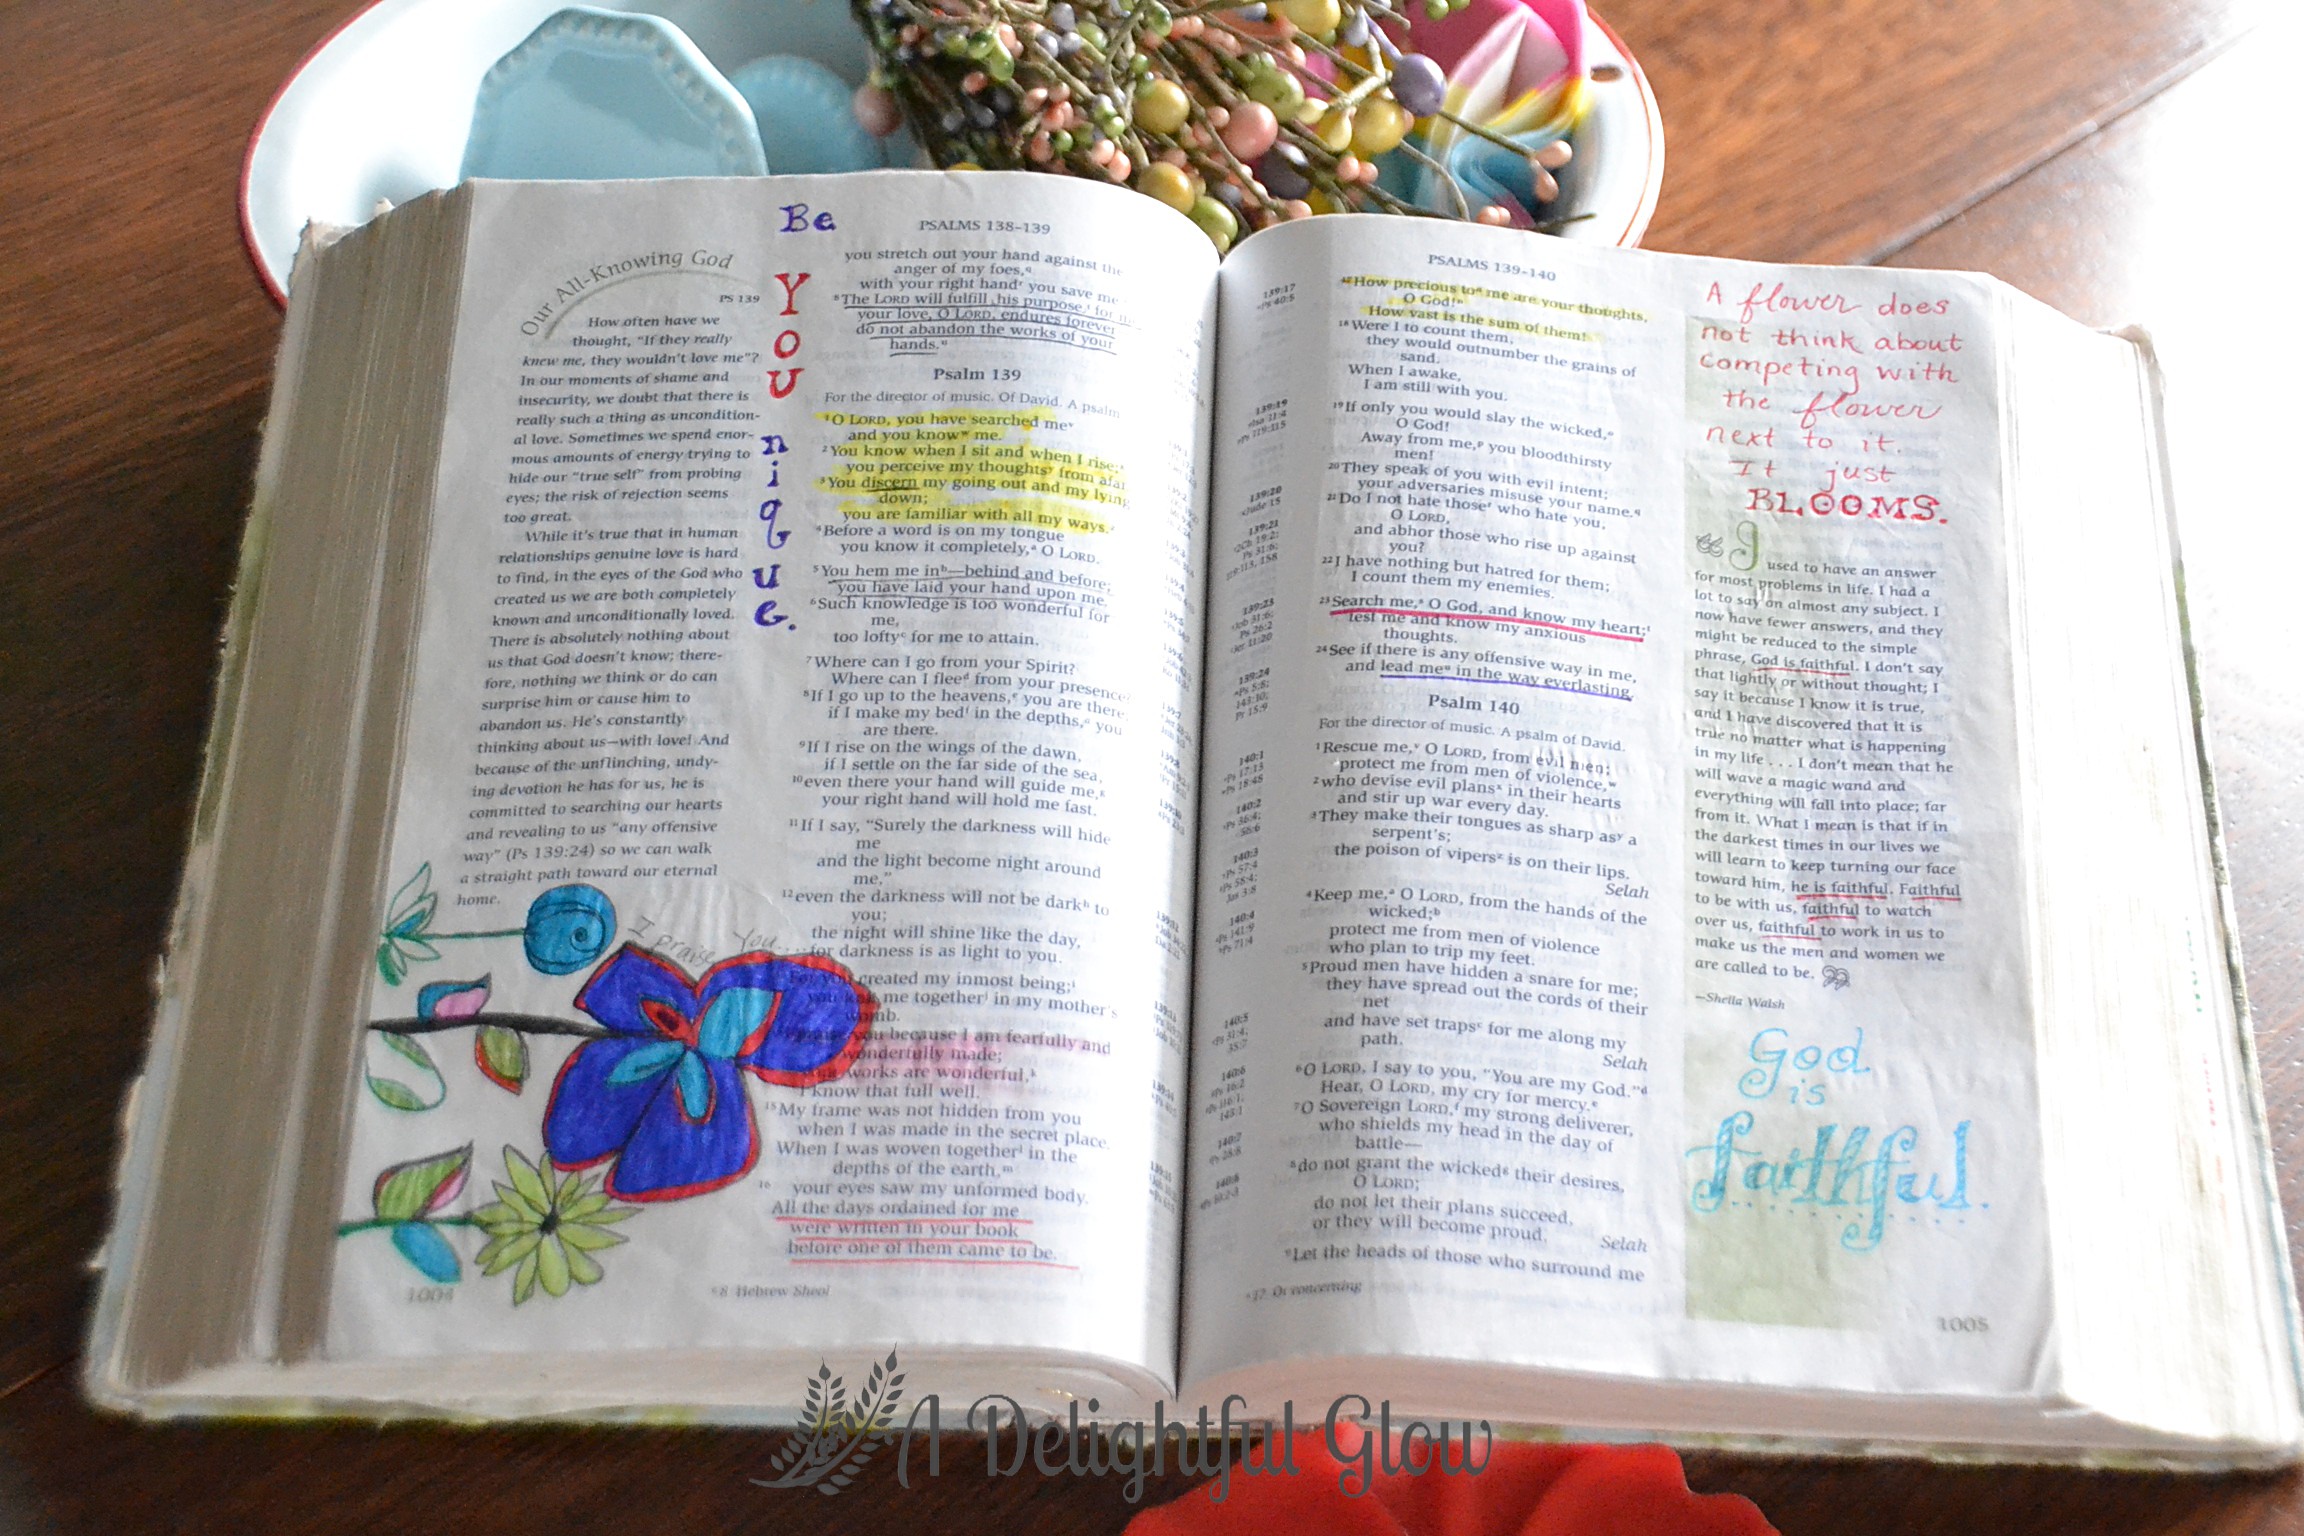 PSALMS 138–139
Our All-Knowing God
PS 139
How often have we
thought, "If they really
knew me, they wouldn't love me"?
In our moments of shame and
insecurity, we doubt that there is
really such a thing as uncondition-
al love. Sometimes we spend enor-
mous amounts of energy trying to
hide our "true self" from probing
eyes; the risk of rejection seems
too great.
While it's true that in human
relationships genuine love is hard
to find, in the eyes of the God who
created us we are both completely
known and unconditionally loved.
There is absolutely nothing about
us that God doesn't know; there-
fore, nothing we think or do can
surprise him or cause him to
abandon us. He's constantly
thinking about us—with love! And
because of the unflinching, undy-
ing devotion he has for us, he is
committed to searching our hearts
and revealing to us "any offensive
way" (Ps 139:24) so we can walk
a straight path toward our eternal
home.
Be
You
nique.
I praise You...
1004
you stretch out your hand against the
anger of my foes,
with your right hand you save me
8 The LORD will fulfill his purpose for
your love, O LORD, endures forever
do not abandon the works of your
hands.
Psalm 139
For the director of music. Of David. A psalm
1 O LORD, you have searched me
and you know me.
2 You know when I sit and when I rise;
you perceive my thoughts from afar
3 You discern my going out and my lying
down;
you are familiar with all my ways.
4 Before a word is on my tongue
you know it completely, O LORD.
5 You hem me in—behind and before;
you have laid your hand upon me.
6 Such knowledge is too wonderful for
me,
too lofty for me to attain.
7 Where can I go from your Spirit?
Where can I flee from your presence
8 If I go up to the heavens, you are there
if I make my bed in the depths, you
are there.
9 If I rise on the wings of the dawn,
if I settle on the far side of the sea,
10 even there your hand will guide me,
your right hand will hold me fast.
11 If I say, "Surely the darkness will hide
me
and the light become night around
me,"
12 even the darkness will not be dark to
you;
the night will shine like the day,
for darkness is as light to you.
For you created my inmost being;
you knit me together in my mother's
womb.
praise you because I am fearfully and
wonderfully made;
works are wonderful,
I know that full well.
15 My frame was not hidden from you
when I was made in the secret place.
When I was woven together in the
depths of the earth,
16 your eyes saw my unformed body.
All the days ordained for me
were written in your book
before one of them came to be.
8 Hebrew Sheol
PSALMS 139–140
17 How precious to me are your thoughts,
O God!
How vast is the sum of them!
18 Were I to count them,
they would outnumber the grains of
sand.
When I awake,
I am still with you.
19 If only you would slay the wicked,
O God!
Away from me, you bloodthirsty
men!
20 They speak of you with evil intent;
your adversaries misuse your name.
21 Do I not hate those who hate you,
O LORD,
and abhor those who rise up against
you?
22 I have nothing but hatred for them;
I count them my enemies.
23 Search me, O God, and know my heart;
test me and know my anxious
thoughts.
24 See if there is any offensive way in me,
and lead me in the way everlasting.
Psalm 140
For the director of music. A psalm of David.
1 Rescue me, O LORD, from evil men;
protect me from men of violence,
2 who devise evil plans in their hearts
and stir up war every day.
3 They make their tongues as sharp as a
serpent's;
the poison of vipers is on their lips.
Selah
4 Keep me, O LORD, from the hands of the
wicked;
protect me from men of violence
who plan to trip my feet.
5 Proud men have hidden a snare for me;
they have spread out the cords of their
net
and have set traps for me along my
path.
Selah
6 O LORD, I say to you, "You are my God."
Hear, O LORD, my cry for mercy.
7 O Sovereign LORD, my strong deliverer,
who shields my head in the day of
battle—
8 do not grant the wicked their desires,
O LORD;
do not let their plans succeed,
or they will become proud.
Selah
9 Let the heads of those who surround me
12 Or concerning
A flower does
not think about
competing with
the flower
next to it.
It just
BLOOMS.
"I used to have an answer
for most problems in life. I had a
lot to say on almost any subject. I
now have fewer answers, and they
might be reduced to the simple
phrase, God is faithful. I don't say
that lightly or without thought; I
say it because I know it is true,
and I have discovered that it is
true no matter what is happening
in my life . . . I don't mean that he
will wave a magic wand and
everything will fall into place; far
from it. What I mean is that if in
the darkest times in our lives we
will learn to keep turning our face
toward him, he is faithful. Faithful
to be with us, faithful to watch
over us, faithful to work in us to
make us the men and women we
are called to be."
—Sheila Walsh
God
is
faithful.
1005
A Delightful Glow